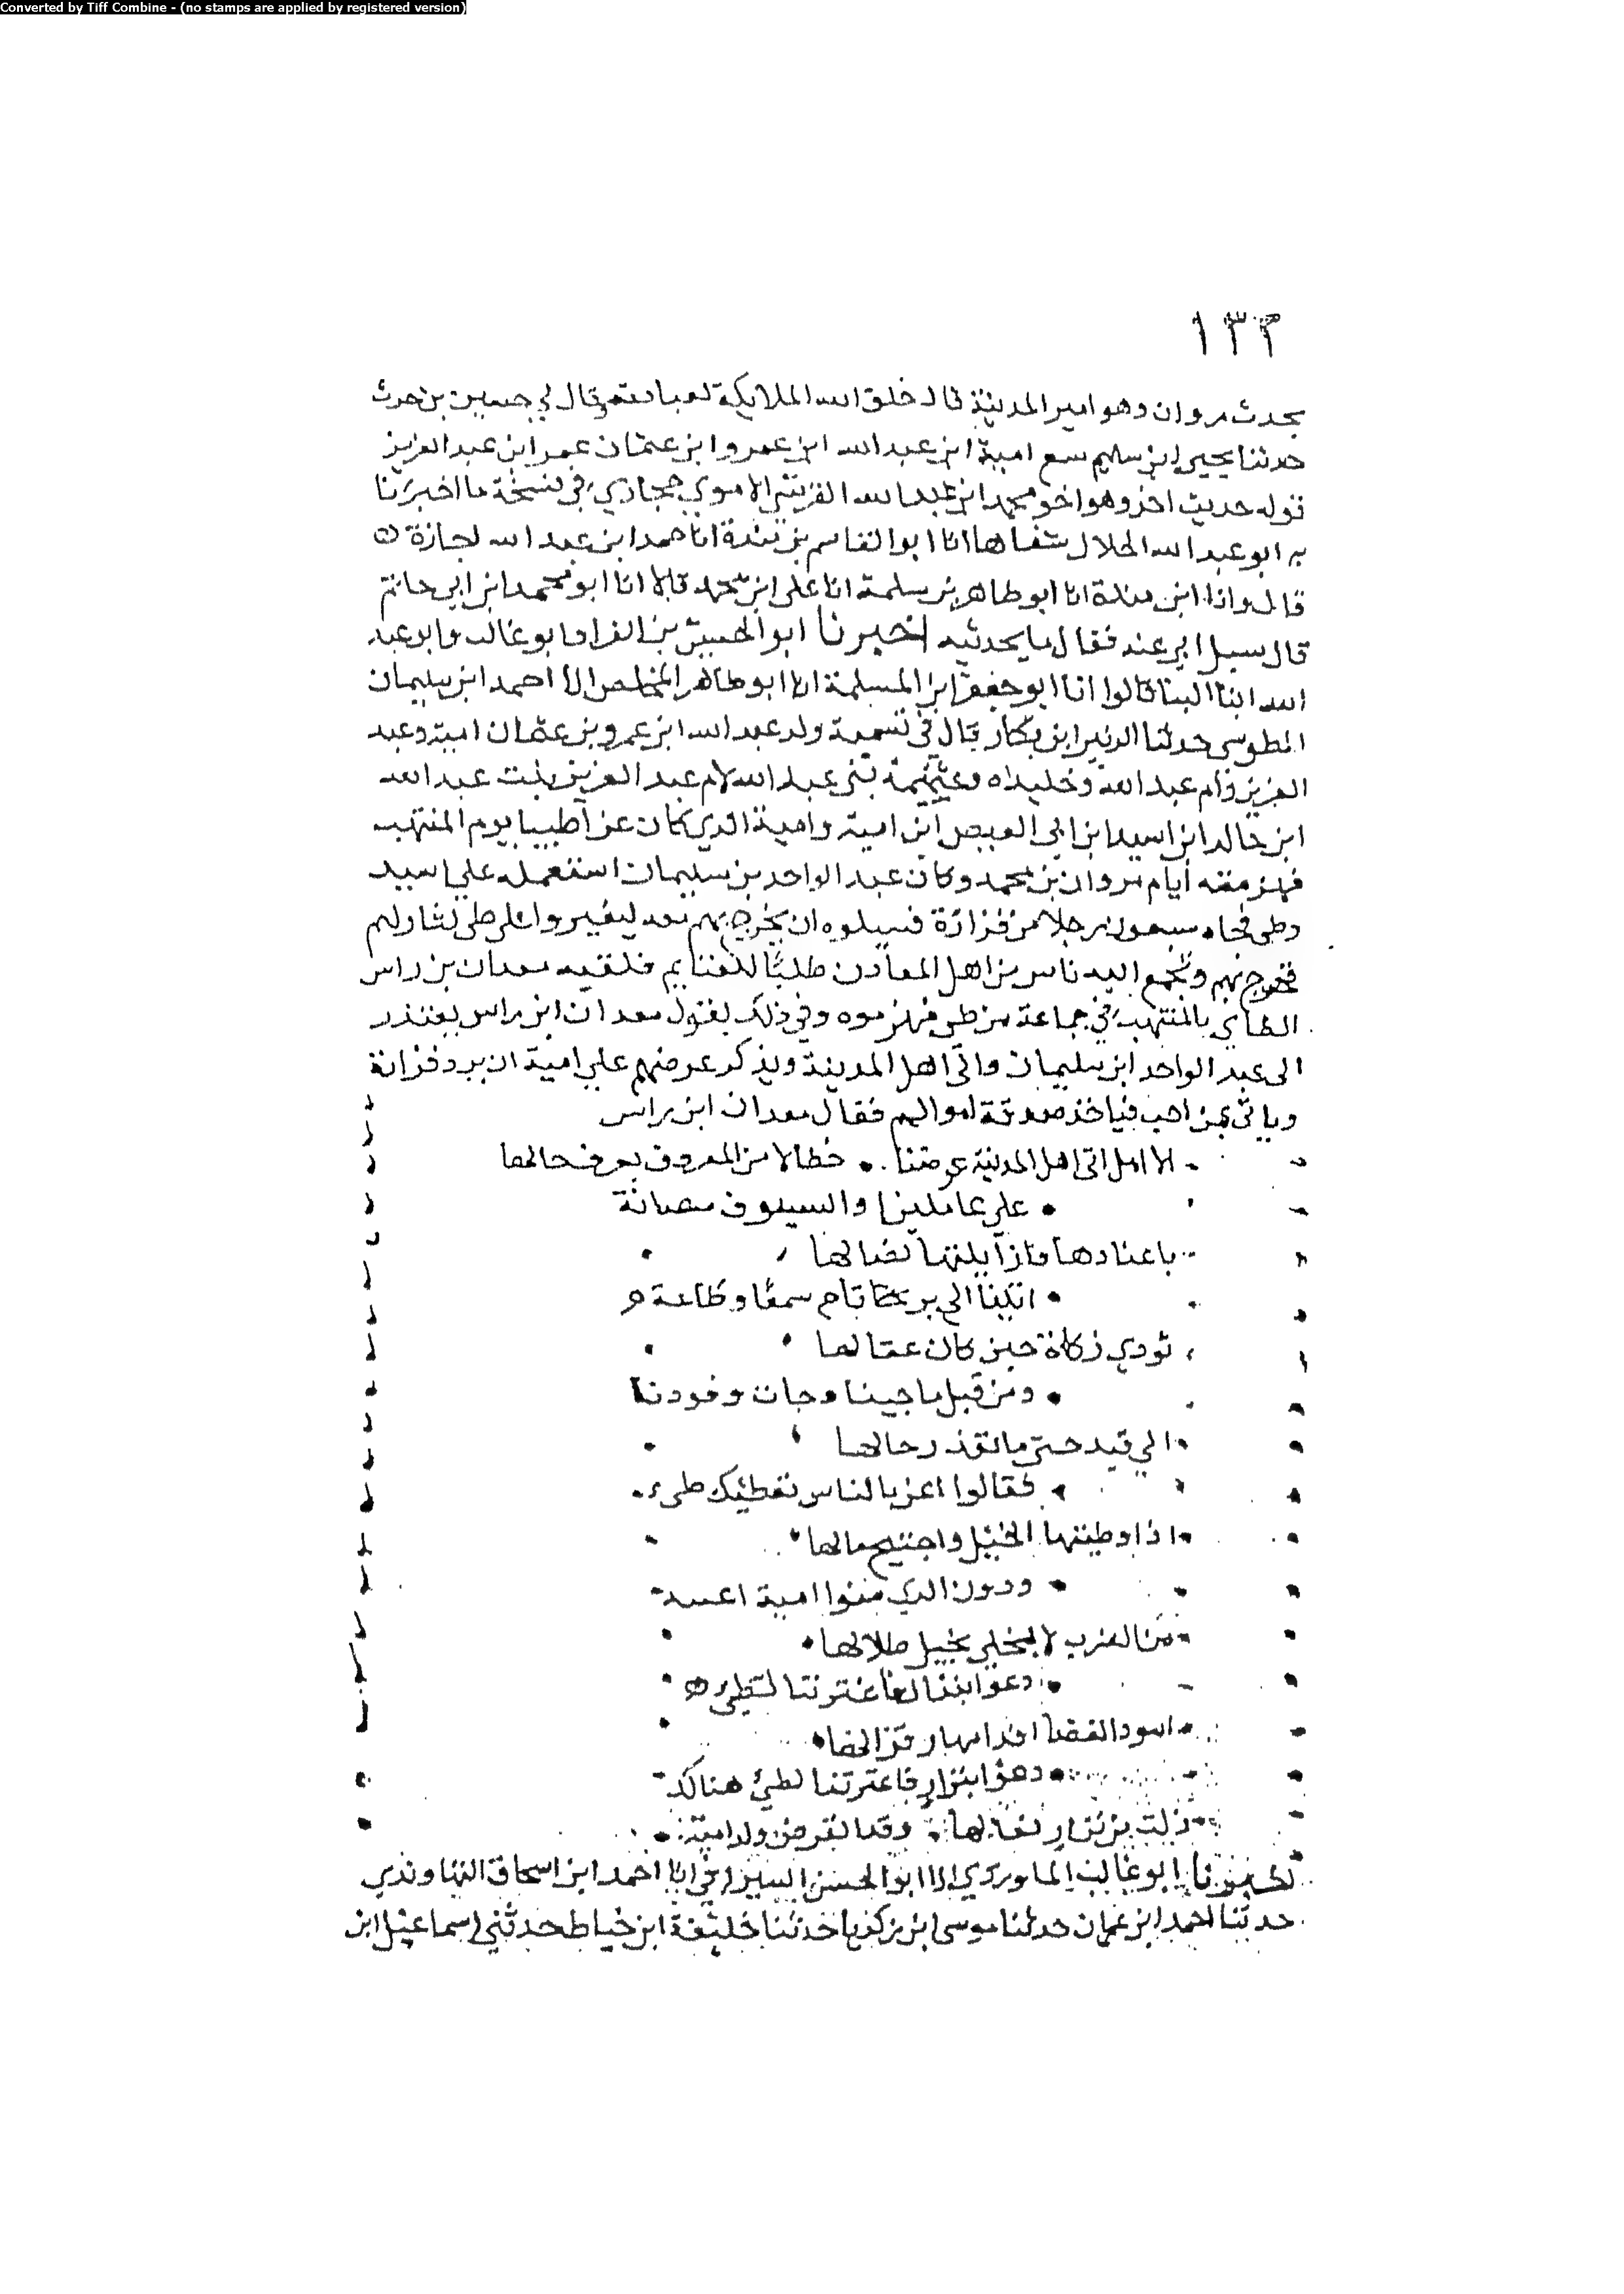 Converted by Tiff Combine - (no stamps are applied by registered version)
١٣٢
يحدث مروان وهو امير المدينة قال خلق الله الملايكة لعبادته وقال لي حسين بن حريث
حدثنا يحيى ابن سليم سمع امية ابن عبد الله ابن عمرو ابن عثمان عمر ابن عبد العزيز
قوله حديث اخر وهو اخو محمد ابن عبد الله القرشي الاموي حجازي في نسخة ما اخبرنا
به ابو عبد الله الخلال شفاها انا ابو القاسم بن مندة انا حمد ابن عبد الله اجازة
قال وانا ابن مندة انا ابو طاهر بن سلمة انا علي ابن محمد قالا انا ابو محمد ابن ابي حاتم
قال سيل ابي عنه فقال ما يحدثيه اخبرنا ابو الحسين بن الفرا وابو غالب وابو عبد
الله ابنا البنا قالوا انا ابو جعفر ابن المسلمة انا ابو طاهر المخلص انا احمد ابن سليمان
الطوسي حدثنا الزبير ابن بكار قال في تسمية ولد عبد الله ابن عمرو بن عثمان امية وعبد
العزيز وام عبد الله وخليده وعثيمة بني عبد الله لام عبد العزيز بنت عبد الله
ابن خالد ابن اسيد ابن ابي العيص ابن امية وامية الذي كان غزا طييا يوم المنتهب
فهزمته ايام مروان بن محمد وكان عبد الواحد بن سليمان استعمله على اسد
وطي فجاه سبعون رجلا من فزارة فسيلوه ان يخرج بهم معه ليغيروا على طي لثارلهم
فخرج بهم وتجمع اليه ناس من اهل المعادن طلبا للغنايم فلقيه معدان بن راس
الطاي بالمنتهب في جماعة من طي فهزموه وفي ذلك يقول معدان ابن راس يعتذر
الى عبد الواحد ابن سليمان والى اهل المدينة ويذكر عرضهم على امية ان يرد فزارة
وياتي بمن احب فياخذ صدقة اموالهم فقال معدان ابن راس
الا اهل اتى اهل المدينة عرضنا خطالا من المعروف يعرف حالها
على عاملينا والسيوف مصانة
باعنادها مازايلتها نصالها
اتينا الى سمعا وطاعة
نودي زكاة حين كان عقالها
ومن قبل ما جينا وجات وفودنا
الى فيد حتى ما تعد رحالها
فقالوا اعز بالناس تعطيك طي
اذا وطيتها الخيل واجتيح مالها
ودون الذي منوا امية
من الضرب لا يخلي بخيل طلالها
دعوا لطي
اسود الغضا
دعوا بنزار فاعترتنا لطي هنالك
زلت بنزار نعالها وقد انقرض ولد امية
اخبرنا ابو غالب الماوردي انا ابو الحسن السيرافي انا احمد ابن اسحاق النهاوندي
حدثنا احمد ابن عمران حدثنا موسى ابن زكريا حدثنا خليفة ابن خياط حدثني اسماعيل ابن